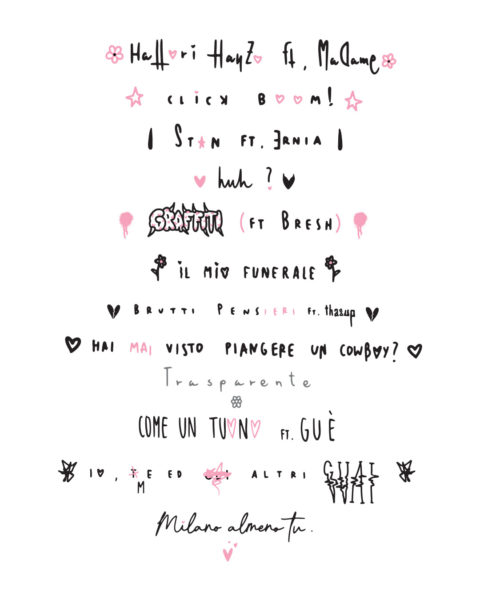 HaTTori HanZo ft. MaDame
CLiCK BOOM!
STAN FT. ERNIA
huh?
GRAFFITI (FT BRESH)
iL MIO FUNERALE
BRUTTI PENSIERI FT. thasup
HAI MAI VISTO PIANGERE UN COWBOY?
Trasparente
COME UN TUONO FT. GUÈ
IO, TE ED GLI ALTRI GUAI
M
Milano almeno tu.